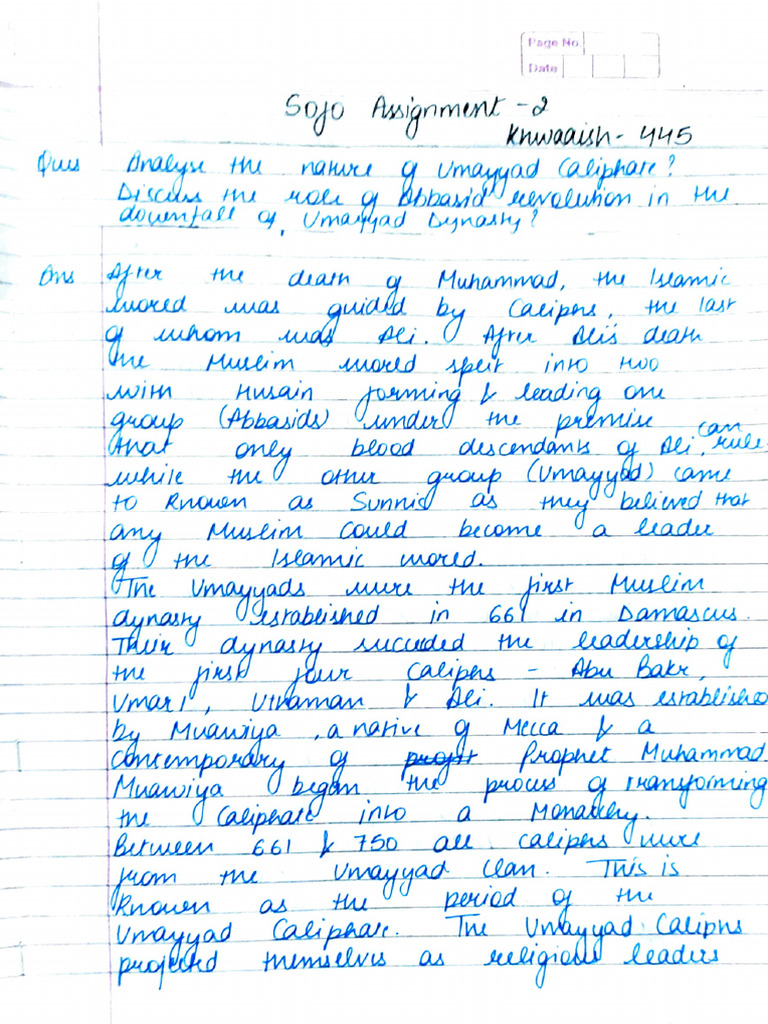 Page No.
Date
Sojo Assignment - 2
Khwaaish - 445
Ques Analyse the nature of Umayyad Caliphate?
Discuss the role of Abbasid revolution in the
downfall of Umayyad Dynasty?
Ans After the death of Muhammad, the Islamic
world was guided by Caliphs, the last
of whom was Ali. After Ali's death
the Muslim world split into two
with Husain forming & leading one
group (Abbasids) under the premise
that only blood descendants of Ali can rule
while the other group (Umayyad) came
to known as Sunnis as they believed that
any Muslim could become a leader
of the Islamic world.
The Umayyads were the first Muslim
dynasty established in 661 in Damascus.
Their dynasty succeeded the leadership of
the first four caliphs - Abu Bakr,
Umar I, Uthaman & Ali. It was established
by Muawiya, a native of Mecca & a
contemporary of Prophet Muhammad.
Muawiya began the process of transforming
the Caliphate into a Monarchy.
Between 661 & 750 all caliphs were
from the Umayyad Clan. This is
known as the period of the
Umayyad Caliphate. The Umayyad Caliphs
projected themselves as religious leaders